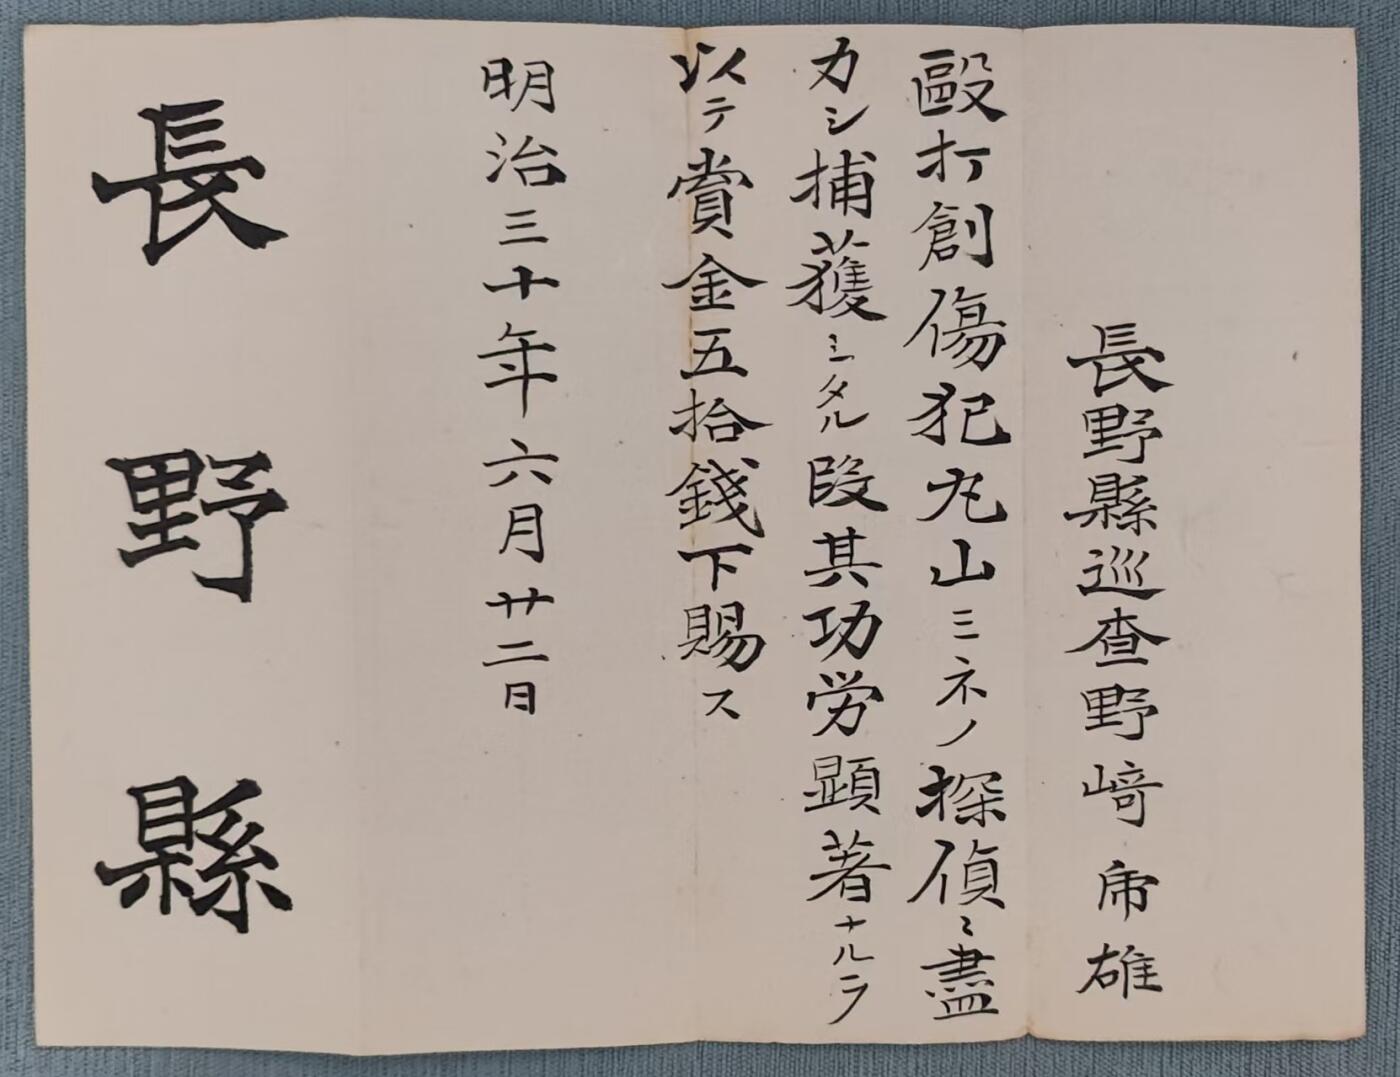 長野縣巡査野﨑乕雄
毆打創傷犯丸山ミネノ探偵ニ盡
力シ捕獲シタル段其功労顕著ナルヲ
以テ賞金五拾錢下賜ス
明治三十年六月廿二日
長野縣